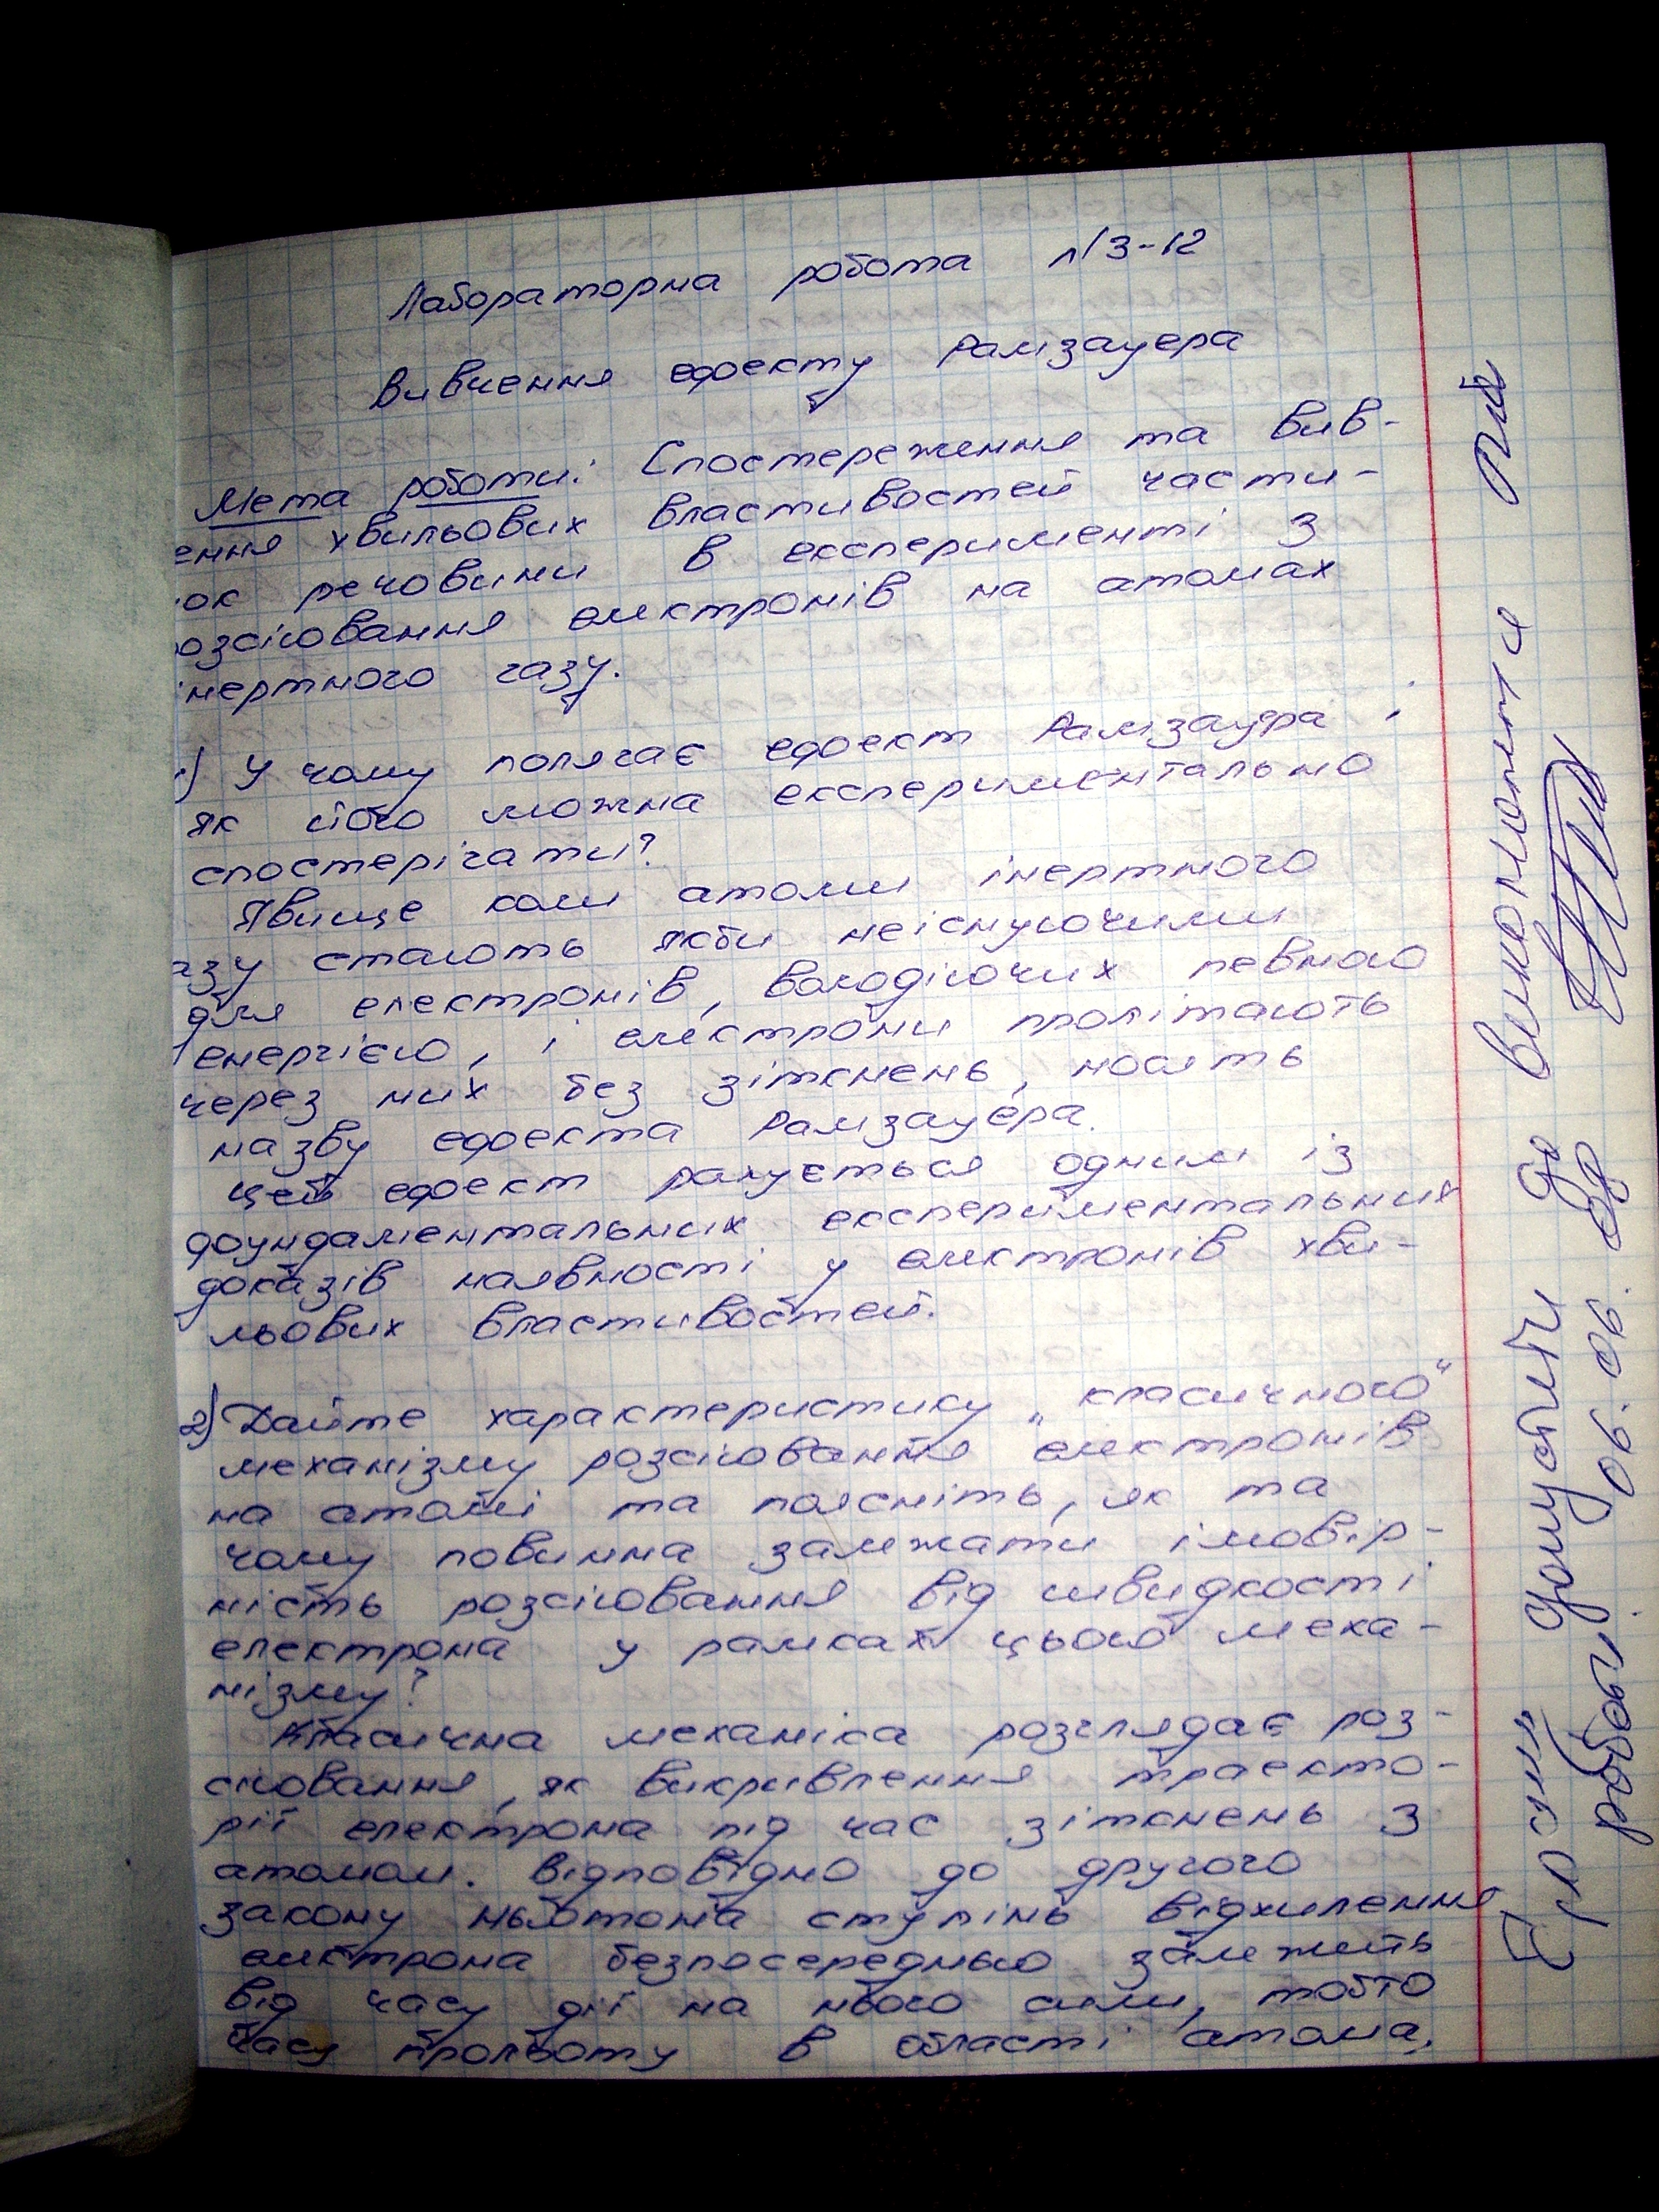 Лабораторна робота №3-12
Вивчення ефекту Рамзауера
Мета роботи: Спостереження та вив-
ення хвильових властивостей части-
ок речовини в експерименті з
озсіювання електронів на атомах
інертного газу.
1) У чому полягає ефект Рамзауера і
як його можна експериментально
спостерігати?
Явище коли атоми інертного
азу стають якби неіснуючими
для електронів, володіючих певною
енергією, і електрони пролітають
через них без зіткнень, носить
назву ефекта Рамзауера.
Цей ефект рахується одним із
фундаментальних експериментальних
доказів наявності у електронів хви-
льових властивостей.
2) Дайте характеристику „класичного“
механізму розсіювання електронів
на атомі та поясніть, як та
чому повинна залежати імовір-
ність розсіювання від швидкості
електрона у рамках цього меха-
нізму?
Класична механіка розглядає роз-
сіювання, як викривлення траекто-
рії електрона під час зіткнень з
атомом. Відповідно до другого
закону Ньютона ступінь відхилення
електрона безпосередньо залежить
від часу дії на нього сили, тобто
часу прольоту в області атома,
допустити до виконання
роботи 06.06.08